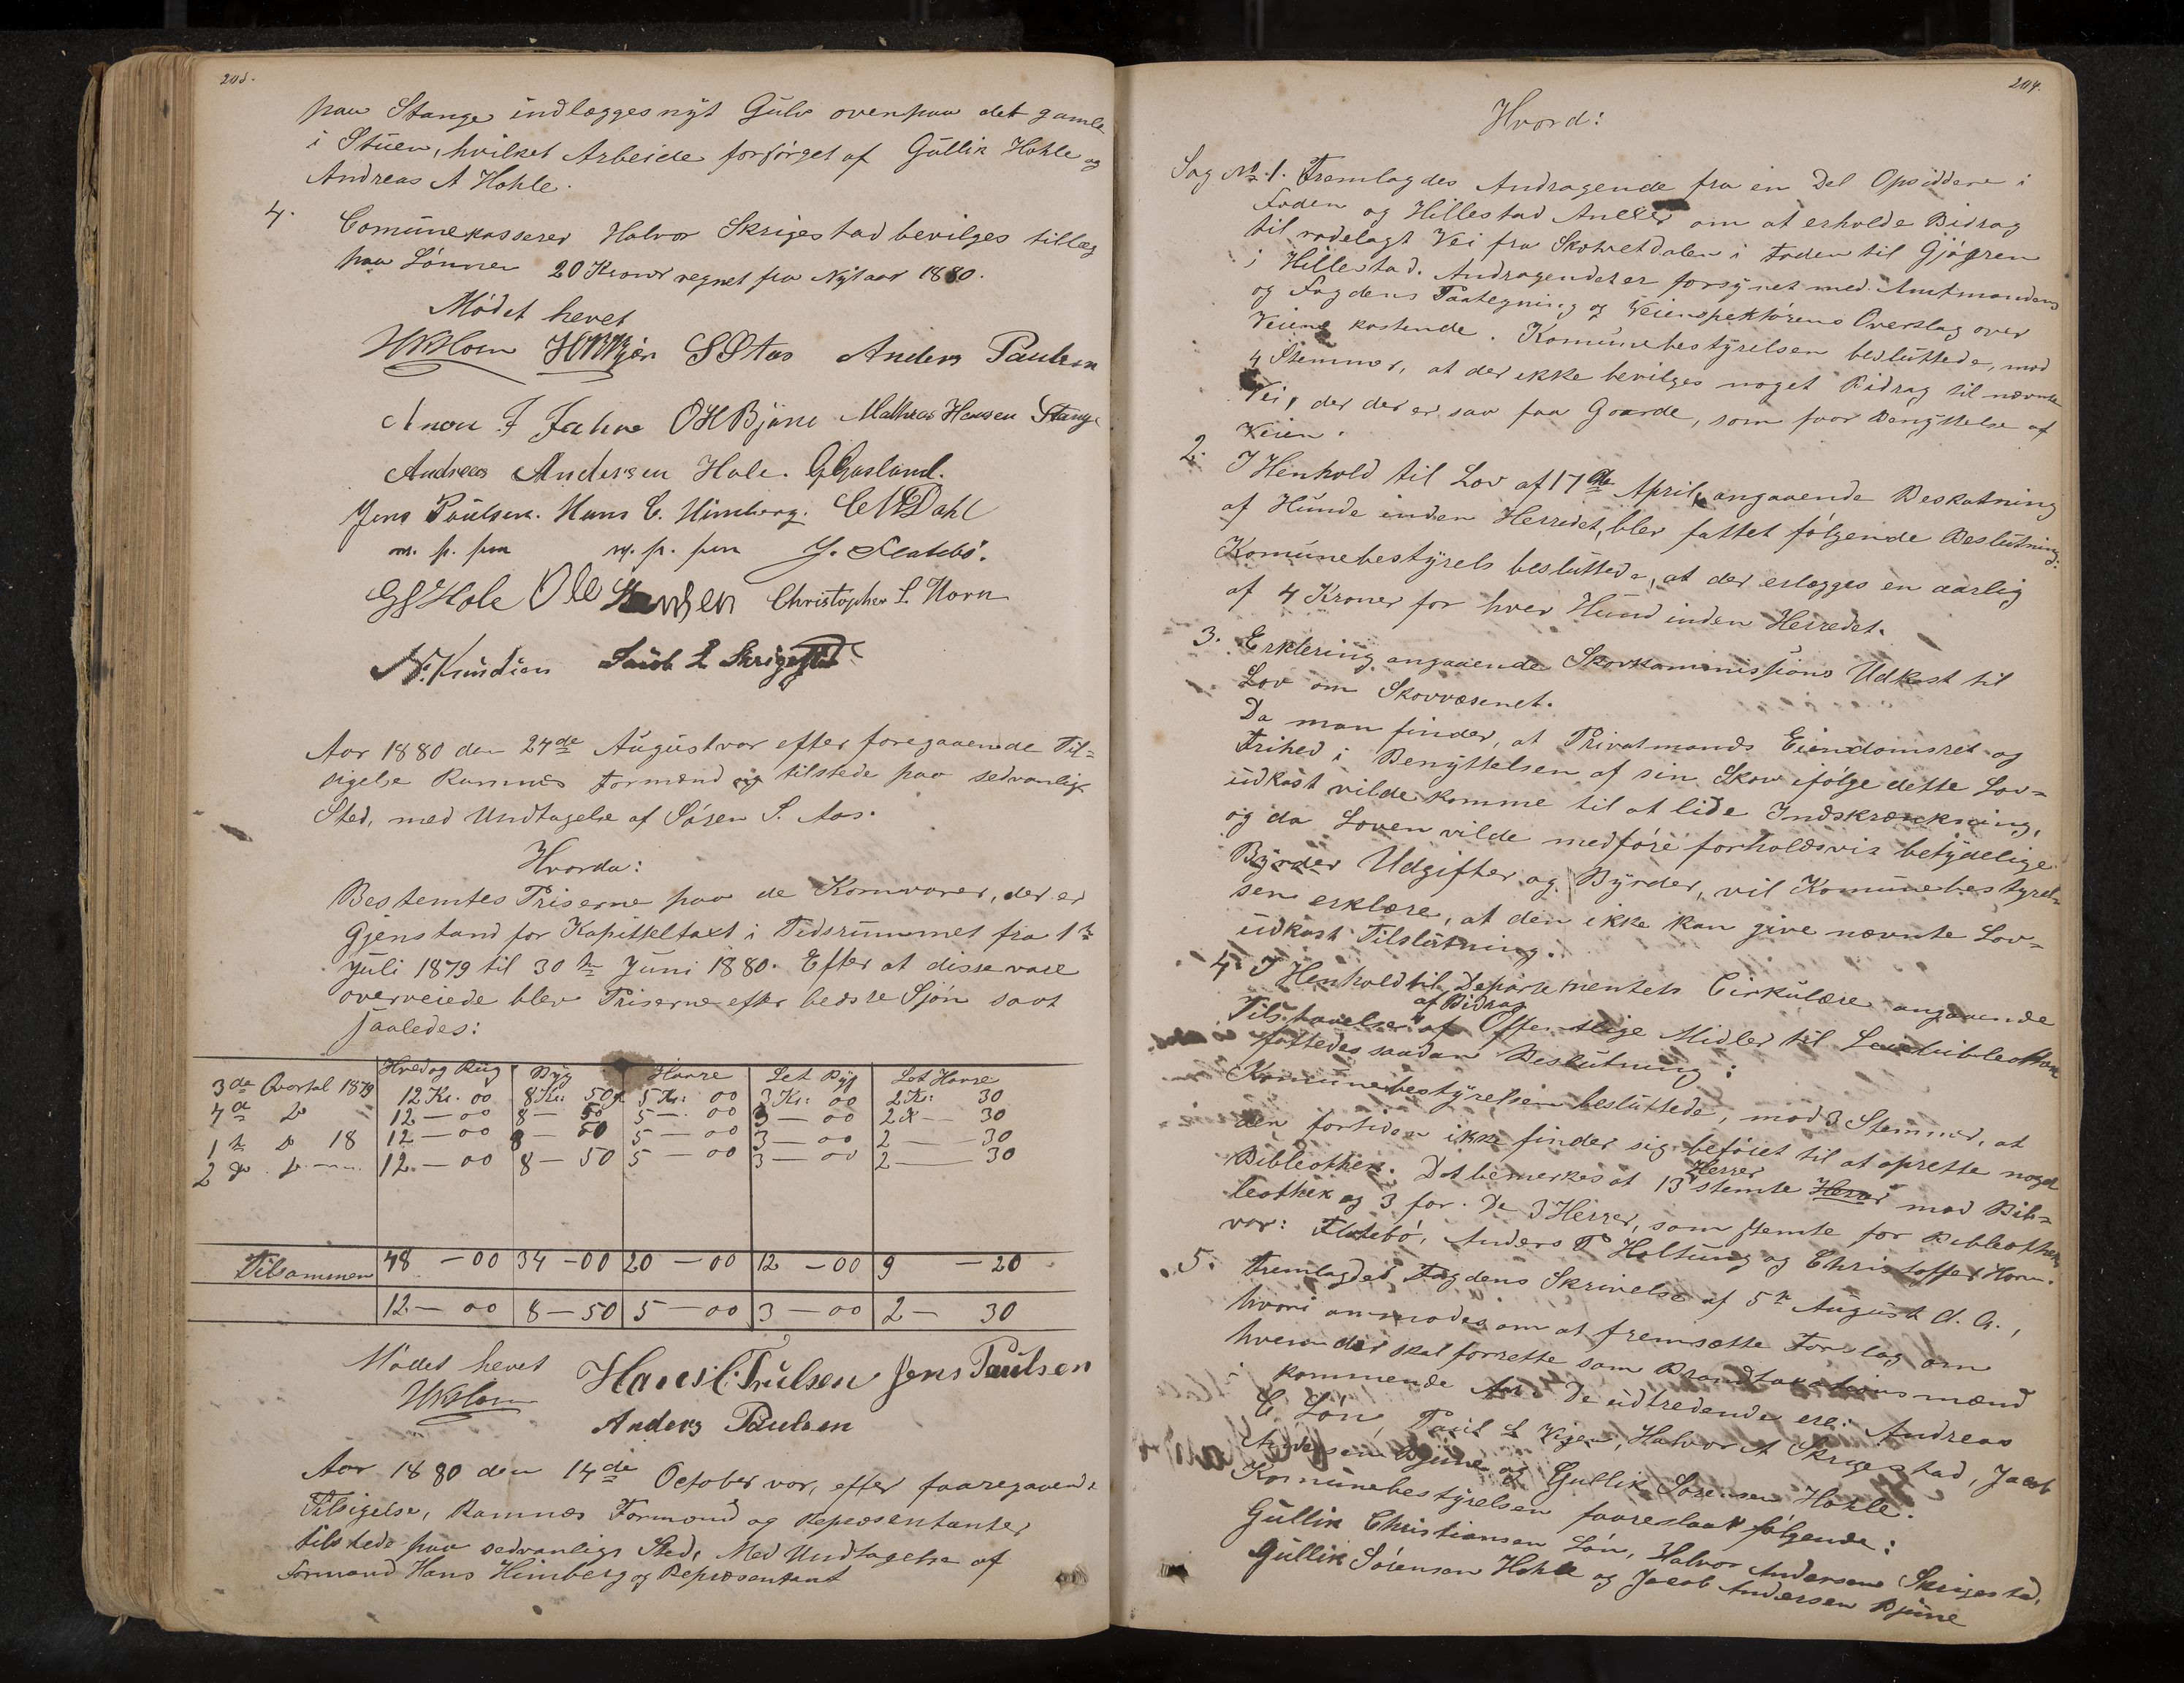 203.
paa Stange indlægges nyt Gulv ovenpaa det gamle
i Stuen, hvilket Arbeide forsørget af Gullik Hohle og
Andreas A Hohle.
4. Comunekasserer Halvor Skrigestad bevilges tillæg
paa Lønnen 20 Kroner regnet fra Nytaar 1880.
Mødet hevet
Anders Paulsen
J Jahre OHBjüne Mathias Hansen Stange
Andreas Andersen Hole. GAasland.
Jens Paulsen. Hans C. Himberg. Dahl
m. p. pen m. p. pen J. Flatebø.
GSHole Ole Hansen Christopher L. Horn
N. Knudsen L Skrigestad
Aar 1880 den 24de August var efter foregaaende Til=
sigelse Ramnes Formænd og tilstede paa sedvanlige
Sted, med Undtagelse af Søren S. Aas.
Hvorda:
Bestemtes Priserne paa de Kornvarer, der er
Gjenstand for Kapitteltaxt i Tidsrummet fra 1te
Juli 1879 til 30te Juni 1880. Efter at disse vare
overveiede blev Priserne efter bedste Sjøn sadt
saaledes:
Hvedog Rug Byg Havre Let Byg Let Havre
3de Qvartal 1879 12 Kr. 00 8 Kr: 50 5 Kr: 00 3 Kr: 00 2 Kr: 30
4de Do 12 — 00 8 — 50 5 — 00 3 — 00 2 — 30
1te Do 18 12 — 00 8 — 50 5 — 00 3 — 00 2 — 30
2de Do 12 — 00 8 — 50 5 — 00 3 — 00 2 — 30
Tilsammen 48 — 00 34 — 00 20 — 00 12 — 00 9 — 20
12 — 00 8 — 50 5 — 00 3 — 00 2 — 30
Mødet hevet Hans C. Trulsen Jens Paulsen
Anders Paulsen
Aar 1880 den 14de October var, efter faaregaaende
Tilsigelse, Ramnes Formænd og Repræsentanter
tilstede paa sedvanlige Sted, Med Undtagelse af
Formand Hans Himberg og Repræsentant
204.
Hvord:
Sag No. 1. Fremlagdes Andragende fra en Del Opsiddere i
Foden og Hillestad Annex om at erholde Bidrag
til rodelagt Vei fra Skotvetdalen i Foden til Gjøgren
i Hillestad. Andragendet er forsynet med Amtmandens
og Fogdens Paategning og Veiinspektørens Overslag over
Veiens kostende. Komunebestyrelsen besluttede, mod
4 Stemmer, at der ikke bevilges noget Bidrag til nævnte
Vei, der der er saa faa Gaarde, som faar Benyttelse af
Veien.
2. I Henhold til Lov af 17de April, angaaende Beskatning
af Hunde inden Herredet, blev fattet følgende Beslutning:
Komunebestyrels besluttede, at der erlægges en aarlig
af 4 Kroner for hver Hund inden Herredet.
3. Erklering angaaende Skovkommissions Udkast til
Lov om Skovvæsenet.
Da man finder, at Privatmands Eiendomsret og
Frihed i Benyttelsen af sin Skov ifølge dette Lov=
udkast vilde komme til at lide Indskrænkning,
og da Loven vilde medføre forholdsvis betydelige
Byrder Udgifter og Byrder, vil Komunebestyrel=
sen erklære, at den ikke kan give nævnte Lov=
udkast Tilslutning.
4. I Henhold til Departementets Cirkulære angaaende
af Bidrag
Tilstaaelse af Offentlige Midler til
fattedes saadan Beslutning:
Komunebestyrelsen besluttede, mod 3 Stemmer, at
den fortiden ikke finder sig beføiet til at oprette noget
Bibleothek. Det bemerkes at 13 Herrer stemte Herrer mod Bib=
leothek og 3 for. De 3 Herrer, som stemte for Bibleothek
var: Flatebø, Anders P Holtung og Christoffer Horn.
5. Fremlagdes Fogdens Skrivelse af 5te August d. A.,
hvori anmodes om at fremsætte Forslag om
hvem der skal forrette som Brandtaxationsmænd
i kommende Aar. De udtredende ere: Andreas
C Løn, Paul L Vegen, Halvor A Skrigestad, Jacob
Andersen Bjüne og Gullik Sørensen Hohle.
Komunebestyrelsen faareslaar følgende:
Gullik Christiansen Løn, Halvor Andersen Skrigestad,
Gullik Sørensen Hohle og Jacob Andersen Bjüne